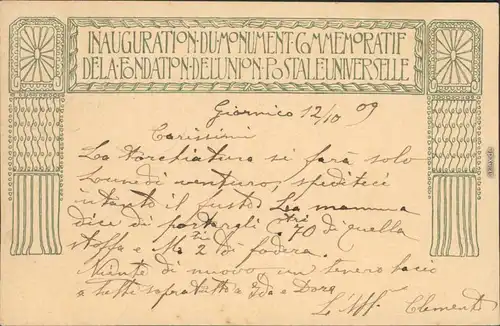 INAUGURATION·DU·MONUMENT·COMMEMORATIF
DE·LA·FONDATION·DE·L'UNION·POSTALE·UNIVERSELLE
Giornico 12/10 09
Carissimi
La torchiatura si farà solo
Lunedì venturo, spediteci
intanto il fusto. La mamma
dice di portargli C.tri 70 di quella
stoffa e M. 2 di fodera.
Niente di nuovo un tenero bacio
a tutti sopratutto a Ida e Dora
L'Aff. Clement